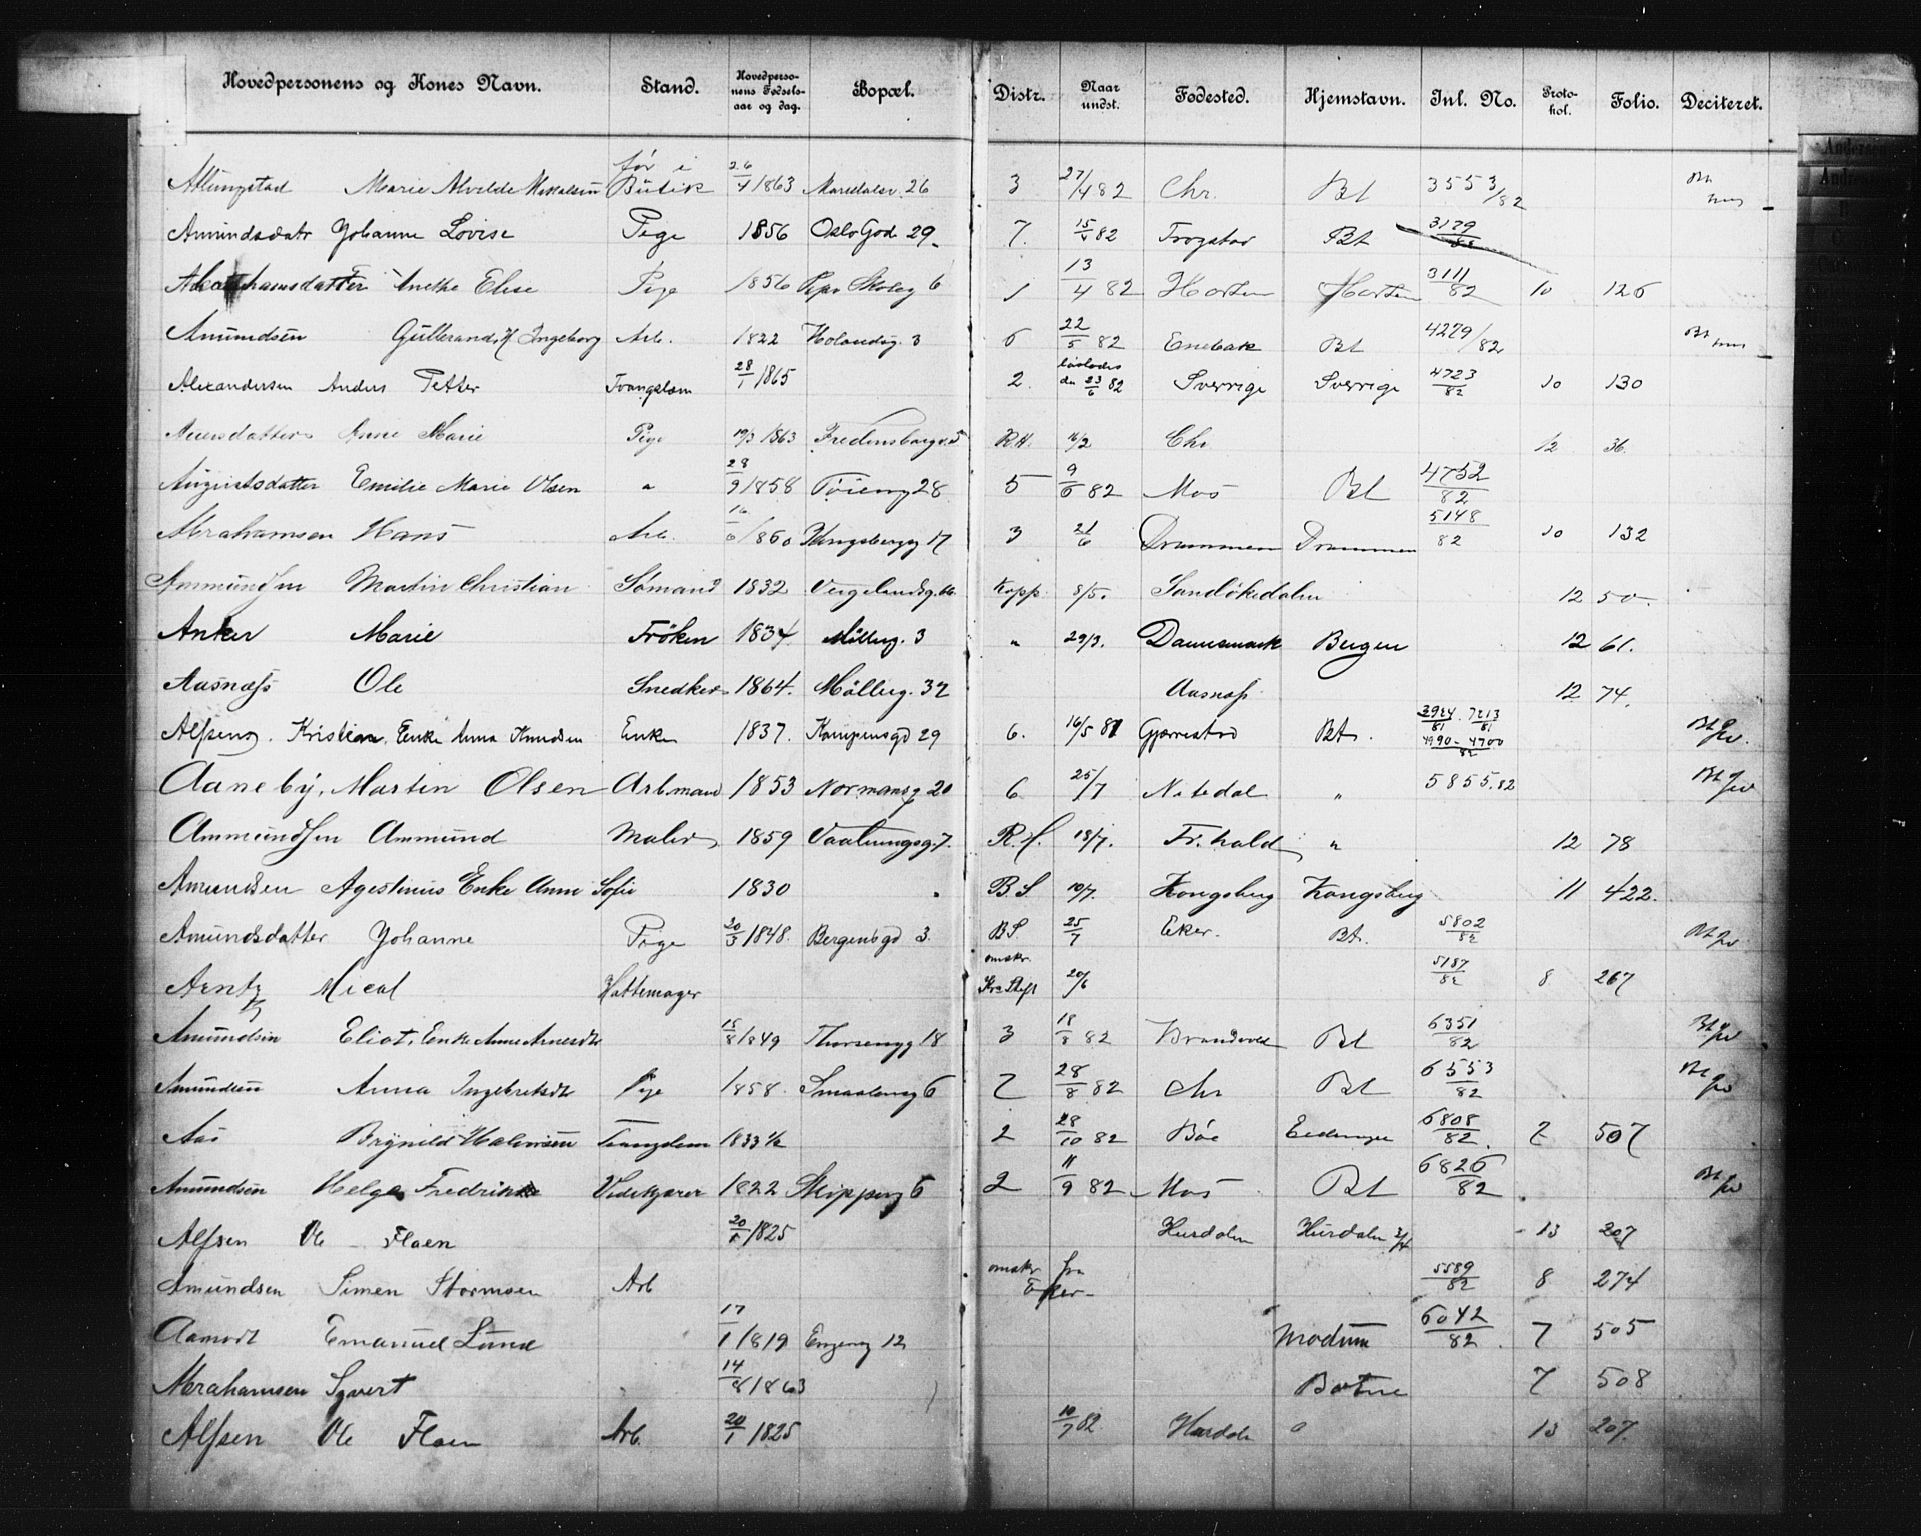 Hovedpersonens og Kones Navn. Stand. Hovedpersonens Fødselsaar og dag. Bopæl. Distr. Naar undst. Fødested. Hjemstavn. Inl. No. Protokol. Folio. Deciteret.
Marie Alvilde før i Butik 26/4 1863 Maridalsv. 26 3 27/4 82 Chr. Bt 3553/82
Amundsdatr Johanne Lovise Pige 1856 Oslo Gad 29 7. 15/4 82 Trogstad Bt 3179/82
Anethe Elise Pige 1856 6 1 13/4 82 Horten Horten 3111/82 10 126
Amundsen Gulbrand, H. Ingeborg Arb. 1822 Holendig. 3 6 22/5 82 Enebak Bt 4279/82
Alexandersen Anders Petter Tvangslem 28/1 1865 2. løslades den 23/6 82 Sverrige Sverrige 4723/82 10 130
Anne Marie Pige 19/3 1863 Fredensborgv. 5 R.H. 16/2 Chr 12 36.
Augustsdatter Emilie Marie Olsen " 28/9 1858 Tøieng 28 5 9/6 82 Mos Bt 4752/82
Abrahamsen Hans Arb. 16/6 1860 Kongsbergg 17 3 21/6 Drammen Drammen 5148/82 10 132
Ammundsen Martin Christian Sømand 1832 Vergelandsg. Kopp 8/5. Sandökedalen 12 50.
Anker Marie Fröken 1834. Möllerg. 3 " 29/3. Dannemark Bergen 12 61.
Aasnæss Ole Snedker 1864. Möllerg. 32 Aasnæss 12 74.
Alfsen. Kristian, Enke Anna Knudsen Enke 1837. Kampensgd 29 6. 16/5 81 Gjærrestad Bt. 3924/81 . 7213/81 4990 - 4700/82
Aaneby, Martin Olsen Arbmand 1853 Normansg 20 6 25/7 Nitedal " 5855.82
Ammundsen Ammund Maler 1859 Vaalerengsg. 7. R.H. 18/7. Fr.hald " 12 78
Amundsen Agestinus Enke Anne Sofie 1830 B.S. 10/7. Kongsberg Kongsberg 11 422.
Amundsdatter Johanne Pige 20/3 1848. Bergensgd 3. B.S. 25/7 Eker. Bt. 5802/82
Arntz Mical Hattemager omskr. Kra Stift 20/6 5187/82 8 267
Amundsen Eliot, Enke Anne Arnesdtr 15/8 1849 Thorseng 18 3 18/8 82 Brandvold Bt 6351/82
Amundsen Anna Ingebretsdtr Pige 1858. Smaaleneg 6 2 28/8 82 Chr Bt 6553/82
Aas Brynild Halvorsen Tvangslem 1833 2 28/10 82 Bøe 6808/82. 7 507
Amundsen Helge Fredrikke Vedskjærer 1822 Skipperg 5 2 11/9 82 Mos Bt 6826/82
Alfsen Ole Flaen 20/1 1825 Hurdalen Hurdalen 13 207
Amundsen Simen Stormoen Arb omskr fra Eker 5589/82 8 274
Aamodt Emanuel Lund 17/1 1819 Engeng 12 Modum 6042/82. 7 505
Abrahamsen Syvert 14/8 1863 Botne 7 508
Alfsen Ole Flaen Arb. 20/1 1825 10/7 82 Hurdalen " 13 207.